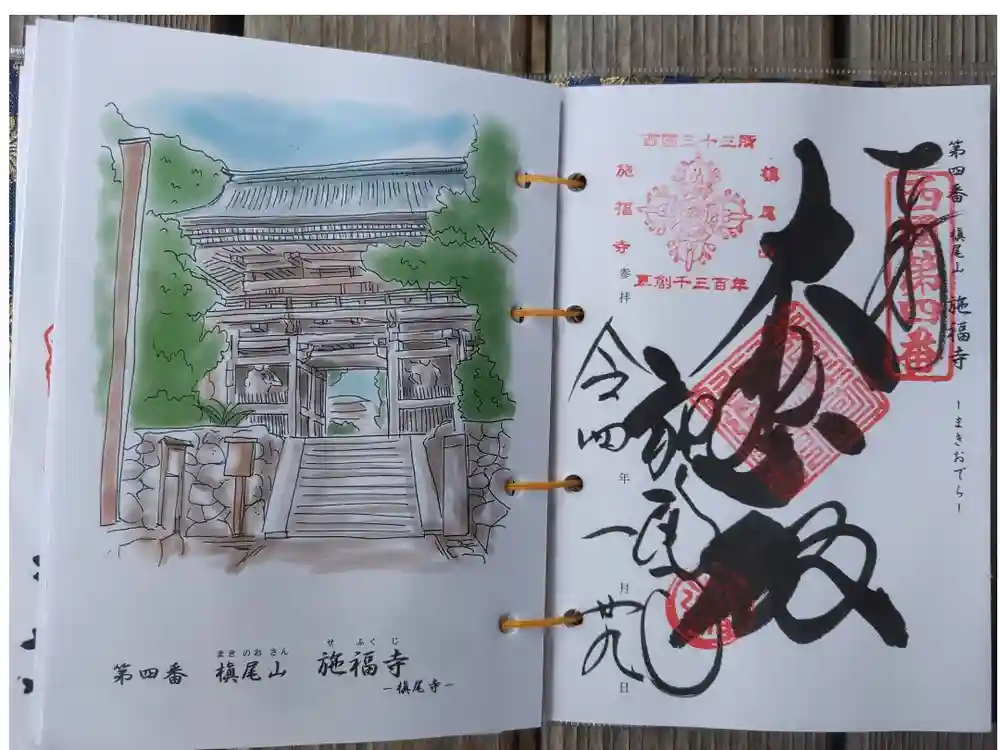 まき のお さん せ ふく じ
第四番 槇尾山 施福寺
ー槇尾寺ー
第四番 槇尾山 施福寺 ーまきおでらー
奉拝
西國第四番
大悲殿
西国三十三所
槇尾山
施福寺
草創千三百年
参拝 令四年一月廿九日